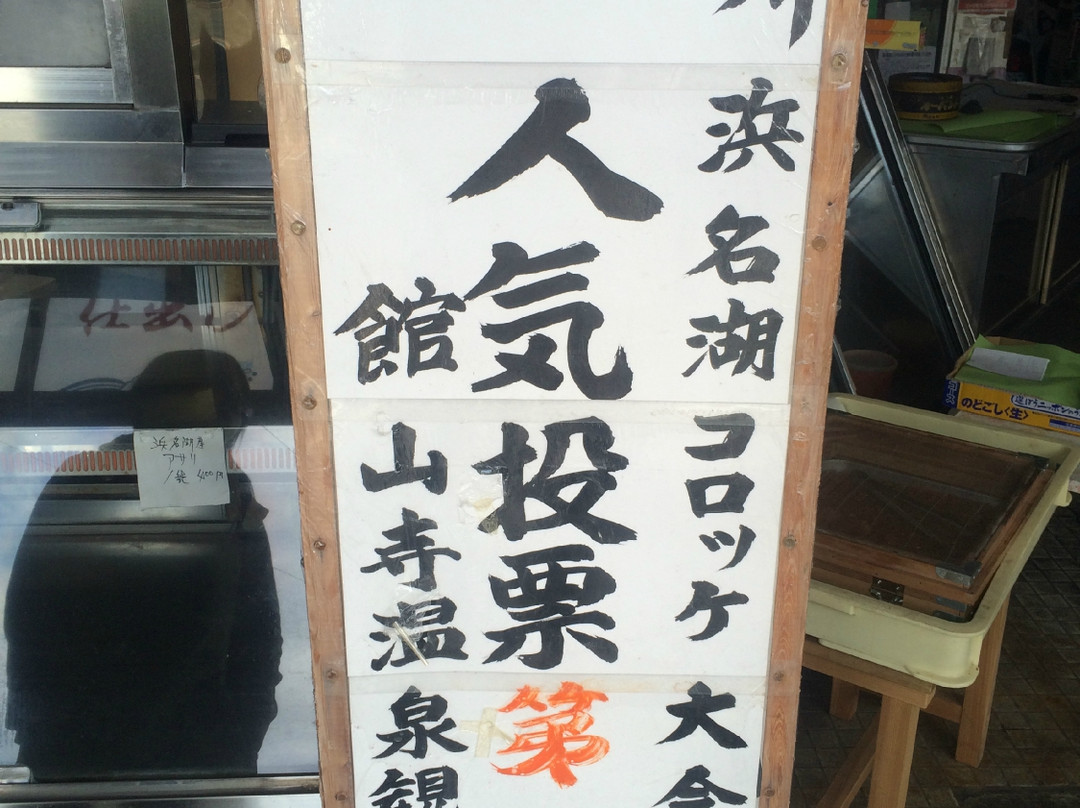 浜名湖コロッケ大会
人気投票第
館山寺温泉観
仕出し
浜名湖産
アサリ
のどごし〈生〉